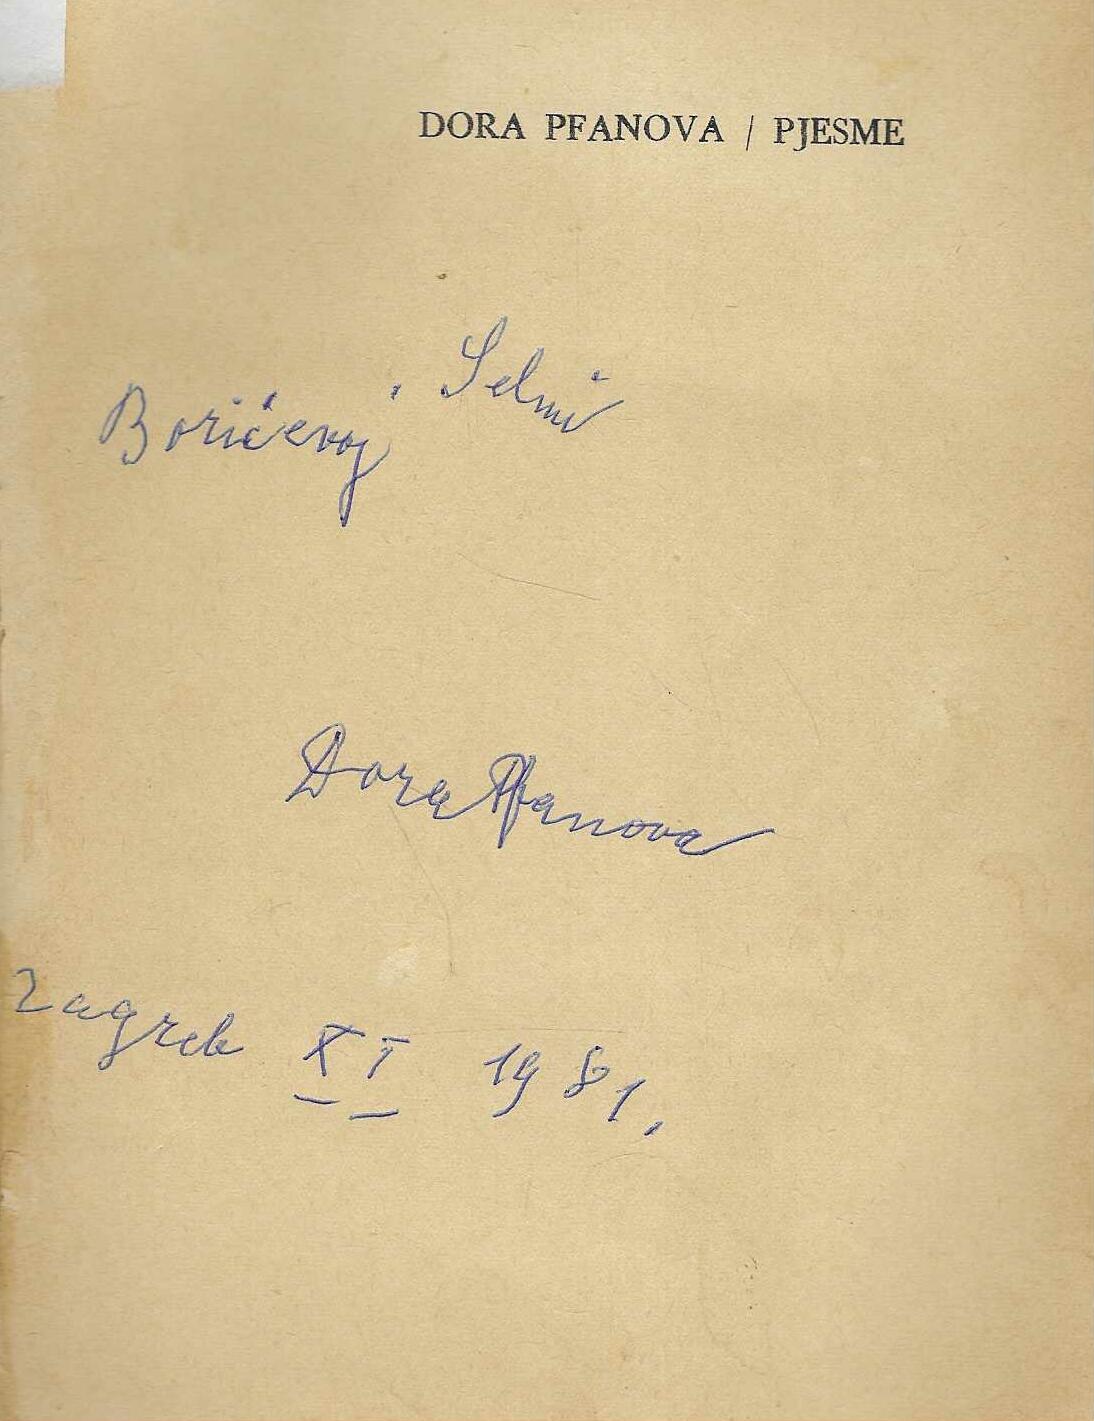 DORA PFANOVA / PJESME
Boričevoj Selmi
Dora Pfanova
Zagreb XI 1981.